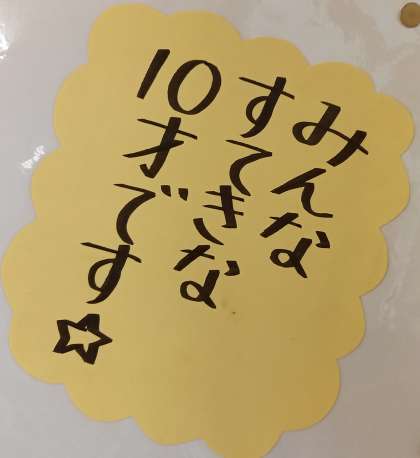 みんな
すてきな
10才です☆